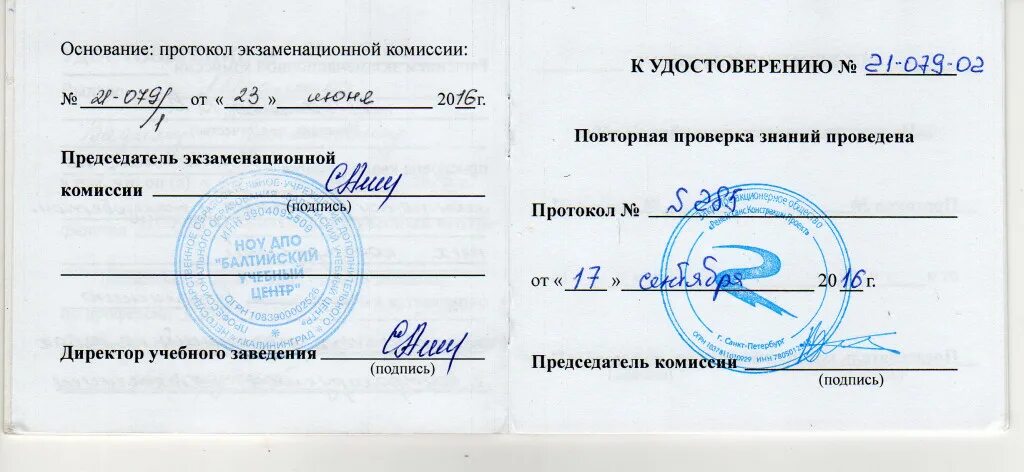 Основание: протокол экзаменационной комиссии:
№ 21-079/1 от « 23 » июня 2016 г.
Председатель экзаменационной
комиссии
(подпись)
НОУ ДПО
"БАЛТИЙСКИЙ
УЧЕБНЫЙ
ЦЕНТР"
ОГРН 1083900002526
КАЛИНИНГРАД
Директор учебного заведения
(подпись)
К УДОСТОВЕРЕНИЮ № 21-079-02
Повторная проверка знаний проведена
Протокол №
акционерное общество
от « 17 » сентября 2016 г.
г. Санкт-Петербург
Председатель комиссии
(подпись)